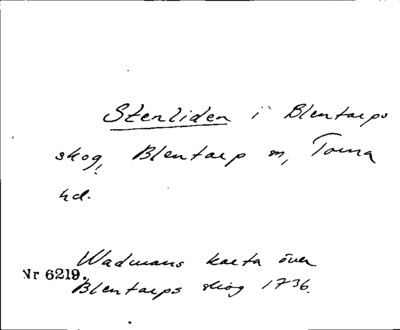 Stenliden i Blentarps
skog, Blentarp sn, Torna
hd.
Wadmans karta över
Nr 6219.
Blentarps skog 1736.